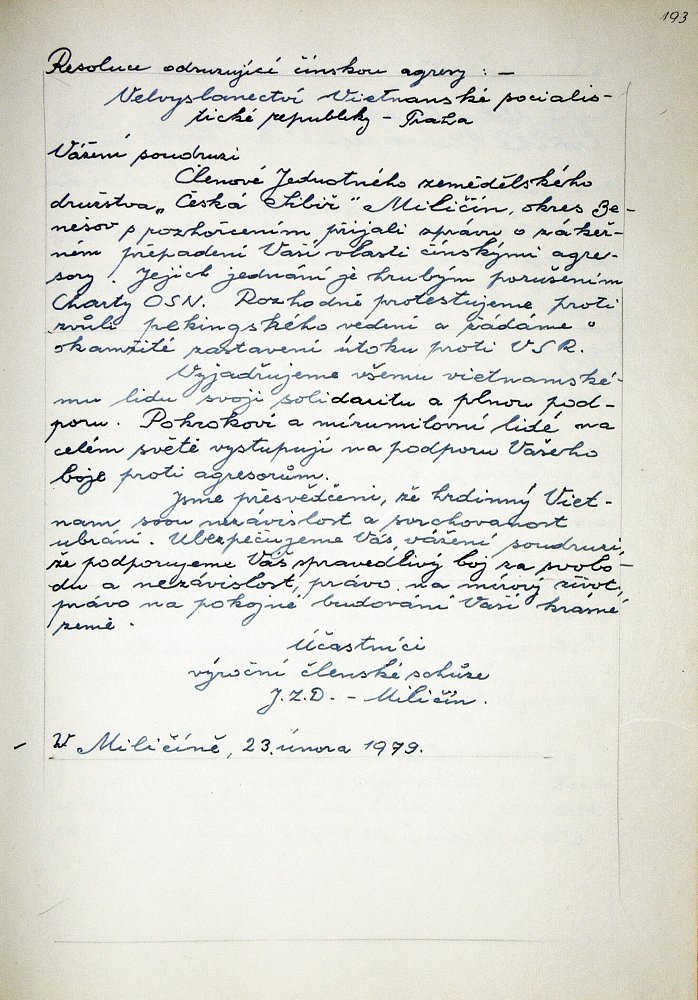 193
Resoluce odsuzující čínskou agresy : –
Velvyslanectví Vietnamské socialis-
tické republiky – Praha
Vážení soudruzi
Členové Jednotného zemědělského
družstva „Česká Sibiř" Miličín, okres Be-
nešov s rozhořčením přijali zprávu o zákeř-
ném přepadení Vaší vlasti čínskými agre-
sory. Jejich jednání je hrubým porušením
Charty OSN. Rozhodně protestujeme proti
zvůli pekingského vedení a žádáme
okamžité zastavení útoku proti VSR.
Vyjadřujeme všemu vietnamské-
mu lidu svoji solidaritu a plnou pod-
poru. Pokrokoví a mírumilovní lidé na
celém světě vystupují na podporu Vašeho
boje proti agresorům.
Jsme přesvědčeni, že hrdinný Viet-
nam, svou nezávislost a svrchovanost
ubrání. Ubezpečujeme Vás vážení soudruzi,
že podporujeme Váš spravedlivý boj za svobo-
du a nezávislost, právo na mírový život,
právo na pokojné budování Vaší krásné
země.
Účastníci
výroční členské schůze
J.Z.D. – Miličín.
W Miličíně, 23. února 1979.